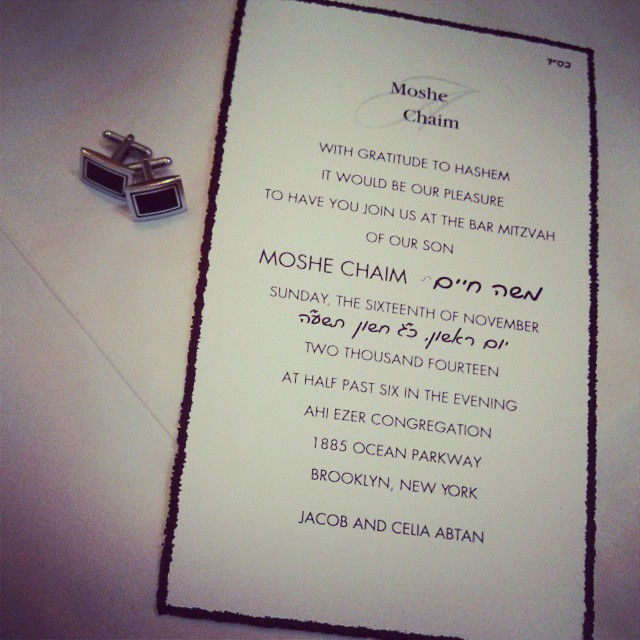 בס"ד
Moshe
Chaim
WITH GRATITUDE TO HASHEM
IT WOULD BE OUR PLEASURE
TO HAVE YOU JOIN US AT THE BAR MITZVAH
OF OUR SON
MOSHE CHAIM ~ משה חיים
SUNDAY, THE SIXTEENTH OF NOVEMBER
יום ראשון, כ"ג חשון תשע"ה
TWO THOUSAND FOURTEEN
AT HALF PAST SIX IN THE EVENING
AHI EZER CONGREGATION
1885 OCEAN PARKWAY
BROOKLYN, NEW YORK
JACOB AND CELIA ABTAN